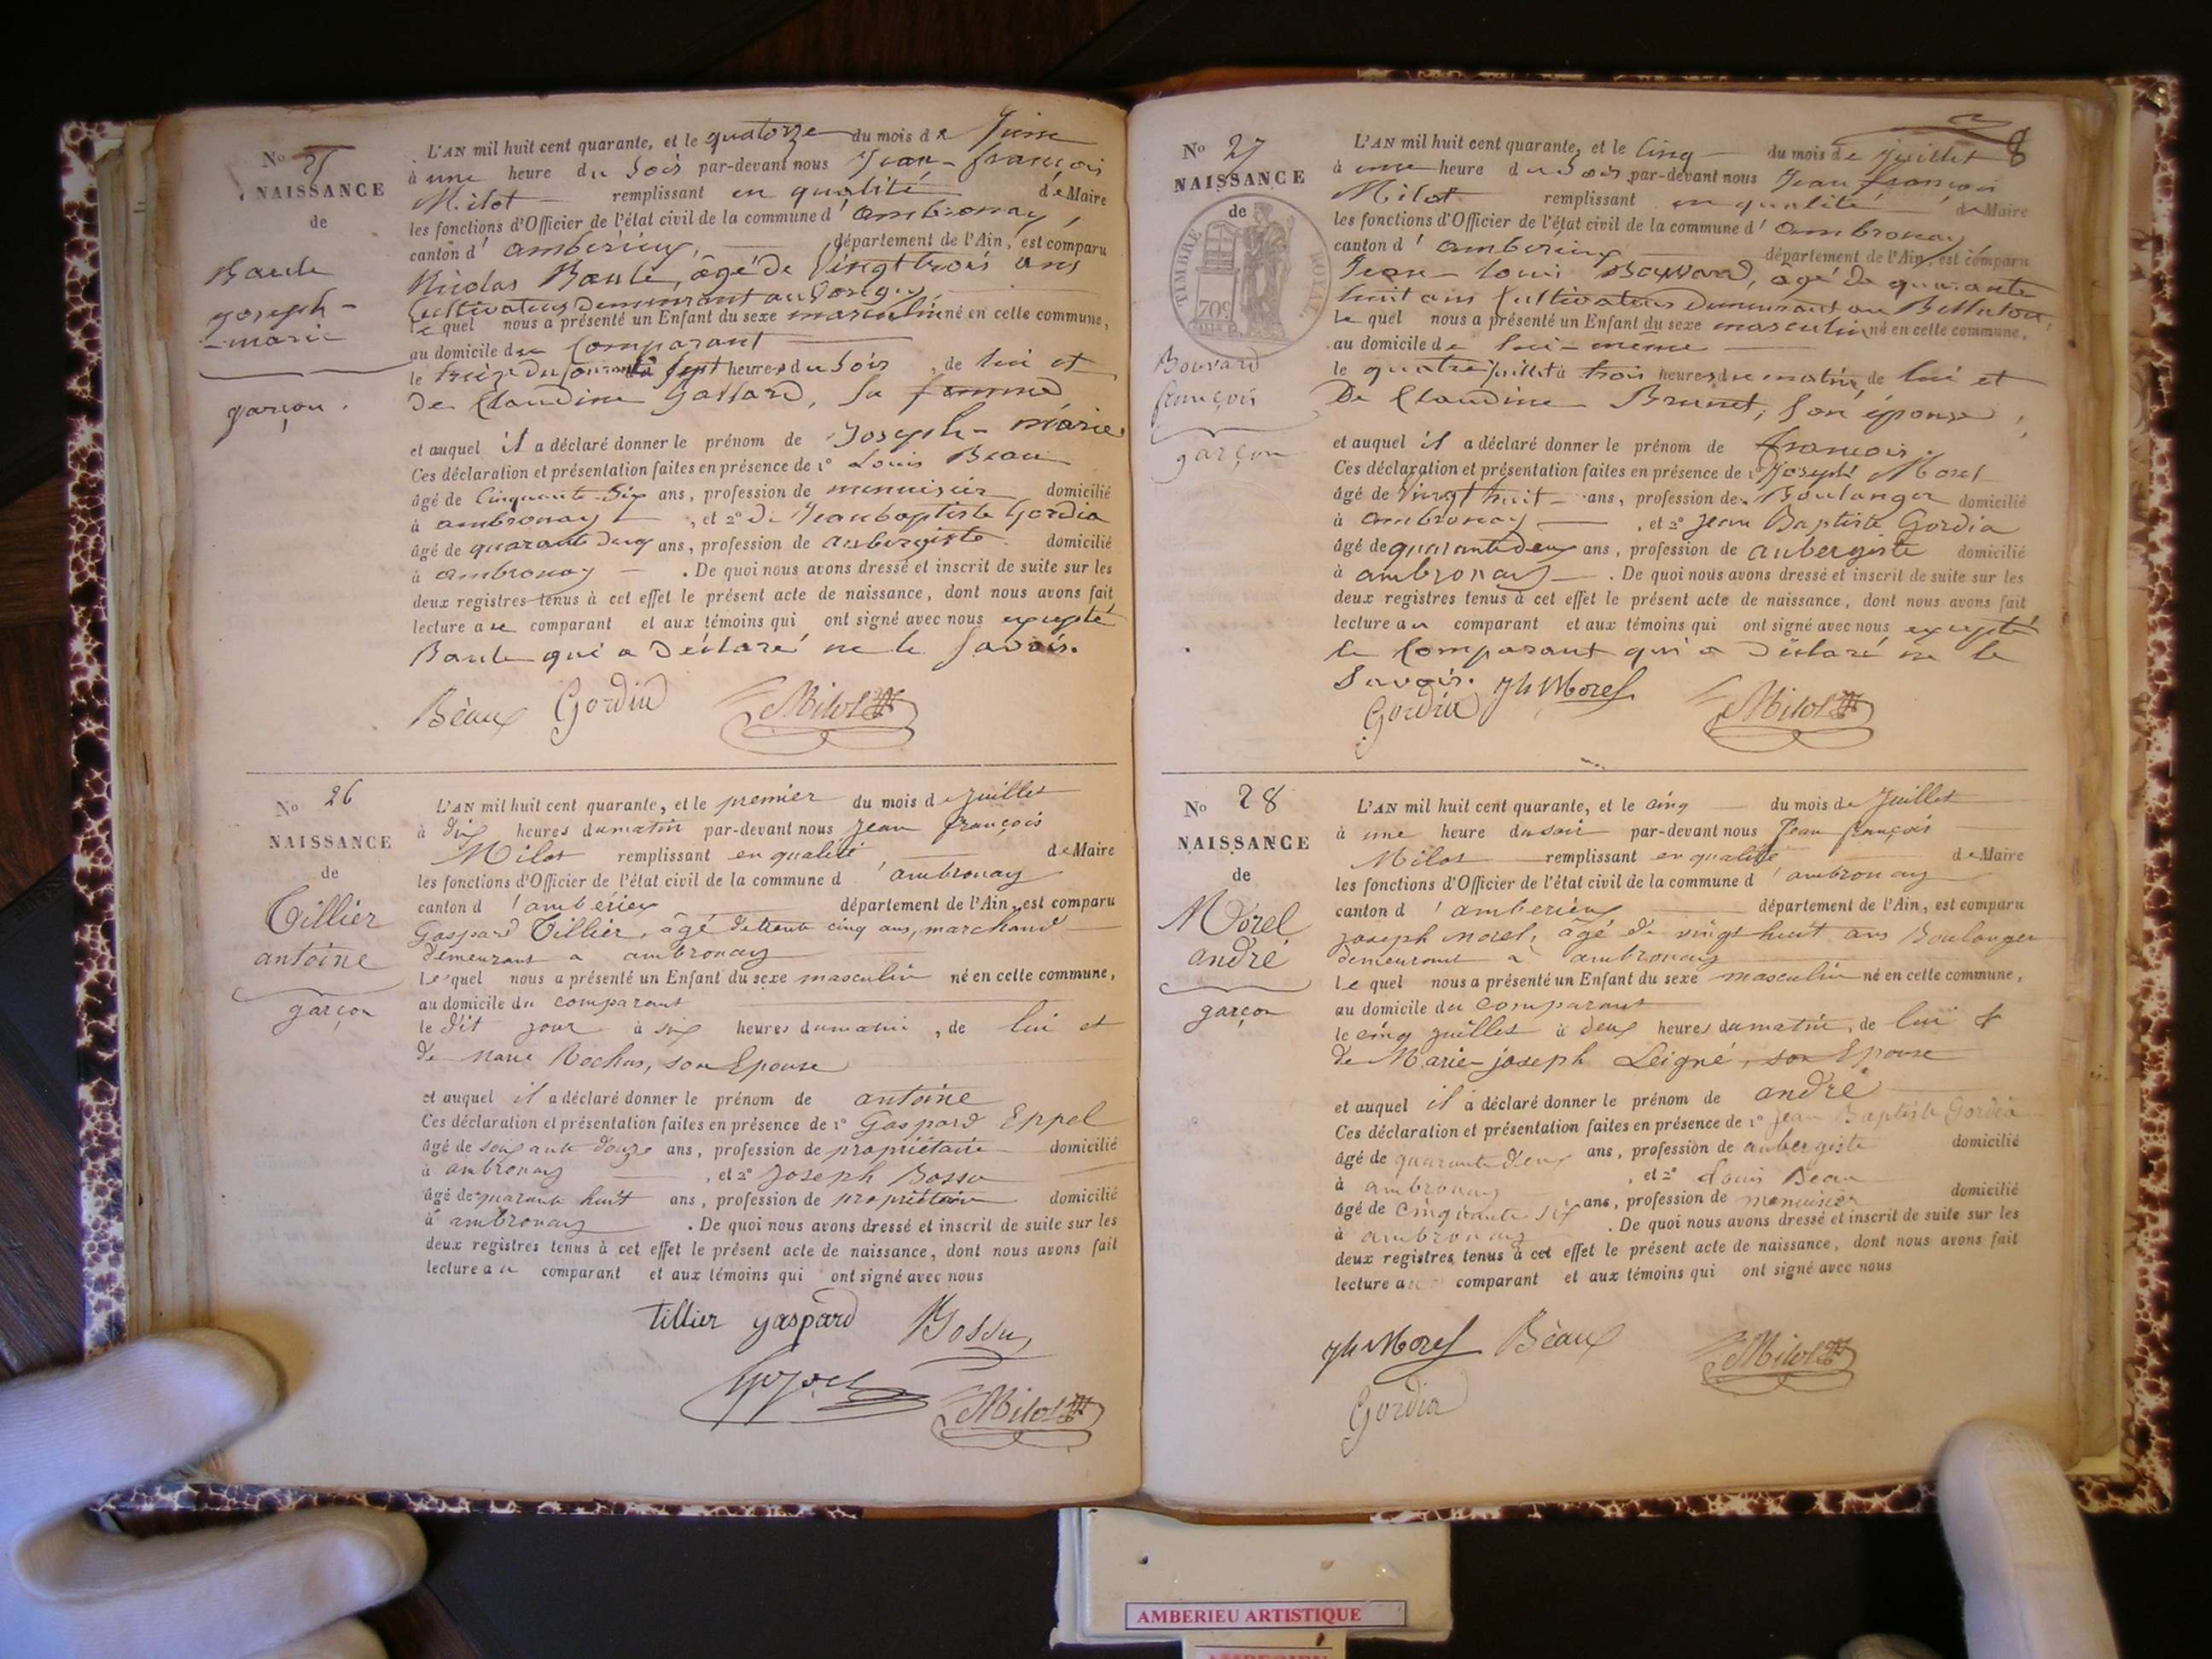 No 25
NAISSANCE
de
Baule
joseph-
-marie
garçon.
L'AN mil huit cent quarante, et le quatorze du mois de Juin
à une heure du Soir par-devant nous Jean-françois
Milot remplissant en qualité de Maire
les fonctions d'Officier de l'état civil de la commune d'ambronay,
canton d'ambérieux, département de l'Ain, est comparu
Nicolas Baule, âgé de Vingt trois ans
Cultivateur demeurant au
le quel nous a présenté un Enfant du sexe masculin né en cette commune,
au domicile du Comparant
le treize du Courant à Sept heures du Soir, de lui et
De Claudine Gallard, Sa femme
et auquel il a déclaré donner le prénom de Joseph-marie
Ces déclaration et présentation faites en présence de 1° Louis Beau
âgé de Cinquante-Six ans, profession de menuisier domicilié
à ambronay, et 2° De Jean baptiste Gordia
âgé de quarante deux ans, profession de aubergiste domicilié
à ambronay. De quoi nous avons dressé et inscrit de suite sur les
deux registres tenus à cet effet le présent acte de naissance, dont nous avons fait
lecture au comparant et aux témoins qui ont signé avec nous excepté
Baule qui a Déclaré ne le Savoir.
Bèaux Gordia Milot
No 26
NAISSANCE
de
Tillier
antoine
garçon
L'AN mil huit cent quarante, et le premier du mois de juillet
à dix heures du matin par-devant nous Jean françois
Milot remplissant en qualité de Maire
les fonctions d'Officier de l'état civil de la commune d'ambronay
canton d'ambérieux département de l'Ain, est comparu
Gaspard Tillier, âgé de trente cinq ans, marchand
demeurant a ambronay
Le quel nous a présenté un Enfant du sexe masculin né en cette commune,
au domicile du comparant
le dit jour à six heures du matin, de lui et
de Marie Rochas, son Epouse
et auquel il a déclaré donner le prénom de antoine
Ces déclaration et présentation faites en présence de 1° Gaspard Eppel
âgé de soixante douze ans, profession de propriétaire domicilié
à ambronay, et 2° Joseph Bossu
âgé de quarante huit ans, profession de propriétaire domicilié
à ambronay. De quoi nous avons dressé et inscrit de suite sur les
deux registres tenus à cet effet le présent acte de naissance, dont nous avons fait
lecture au comparant et aux témoins qui ont signé avec nous
Tillier gaspard Bossu
Milot
8
No 27
NAISSANCE
de
TIMBRE ROYAL
709
Bouvard
françois
garçon
L'AN mil huit cent quarante, et le Cinq du mois de Juillet
à une heure du Soir par-devant nous Jean françois
Milot remplissant en qualité de Maire
les fonctions d'Officier de l'état civil de la commune d'ambronay
canton d'ambérieux département de l'Ain, est comparu
Jean-louis Bouvard, âgé de quarante
huit ans Cultivateur Demeurant au
le quel nous a présenté un Enfant du sexe masculin né en cette commune,
au domicile de lui-même
le quatre juillet à trois heures du matin, de lui et
De Claudine Brunet, Son épouse
et auquel il a déclaré donner le prénom de françois.
Ces déclaration et présentation faites en présence de 1° Joseph Morel
âgé de Vingt huit ans, profession de Boulanger domicilié
à ambronay, et 2° Jean Baptiste Gordia
âgé de quarante deux ans, profession de aubergiste domicilié
à ambronay. De quoi nous avons dressé et inscrit de suite sur les
deux registres tenus à cet effet le présent acte de naissance, dont nous avons fait
lecture au comparant et aux témoins qui ont signé avec nous excepté
le Comparant qui a Déclaré ne le
Savoir. Jh Morel
Gordia Milot
No 28
NAISSANCE
de
Morel
andré
garçon
L'AN mil huit cent quarante, et le cinq du mois de Juillet
à une heure du soir par-devant nous Jean françois
Milot remplissant en qualité de Maire
les fonctions d'Officier de l'état civil de la commune d'ambronay
canton d'amberieux département de l'Ain, est comparu
joseph morel, âgé de vingt huit ans Boulanger
demeurant à ambronay
Le quel nous a présenté un Enfant du sexe masculin né en cette commune,
au domicile du comparant
le cinq juillet à deux heures du matin, de lui &
de Marie-joseph Leigné, son Epouse
et auquel il a déclaré donner le prénom de andré
Ces déclaration et présentation faites en présence de 1° Jean Baptiste Gordia
âgé de quarante deux ans, profession de aubergiste domicilié
à ambronay, et 2° Louis Beau
âgé de cinquante six ans, profession de menuisier domicilié
à ambronay. De quoi nous avons dressé et inscrit de suite sur les
deux registres tenus à cet effet le présent acte de naissance, dont nous avons fait
lecture au comparant et aux témoins qui ont signé avec nous
Jh Morel Bèaux Milot
Gordia
AMBERIEU ARTISTIQUE